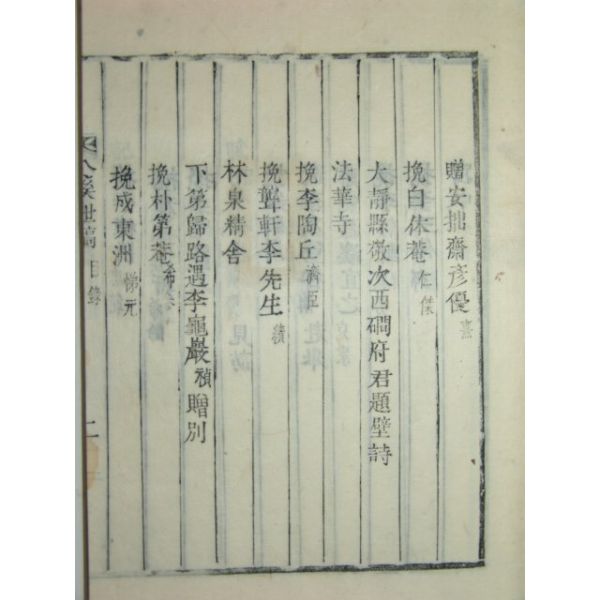 贈安拙齋彦優
挽白休菴仁傑
大靜縣敬次西磵府君題壁詩
法華寺
挽李陶丘濟臣
挽聾軒李先生績
林泉精舍
下第歸路遇李龜巖禎贈別
挽朴第菴
挽成東洲悌元
八溪世稿目錄
二